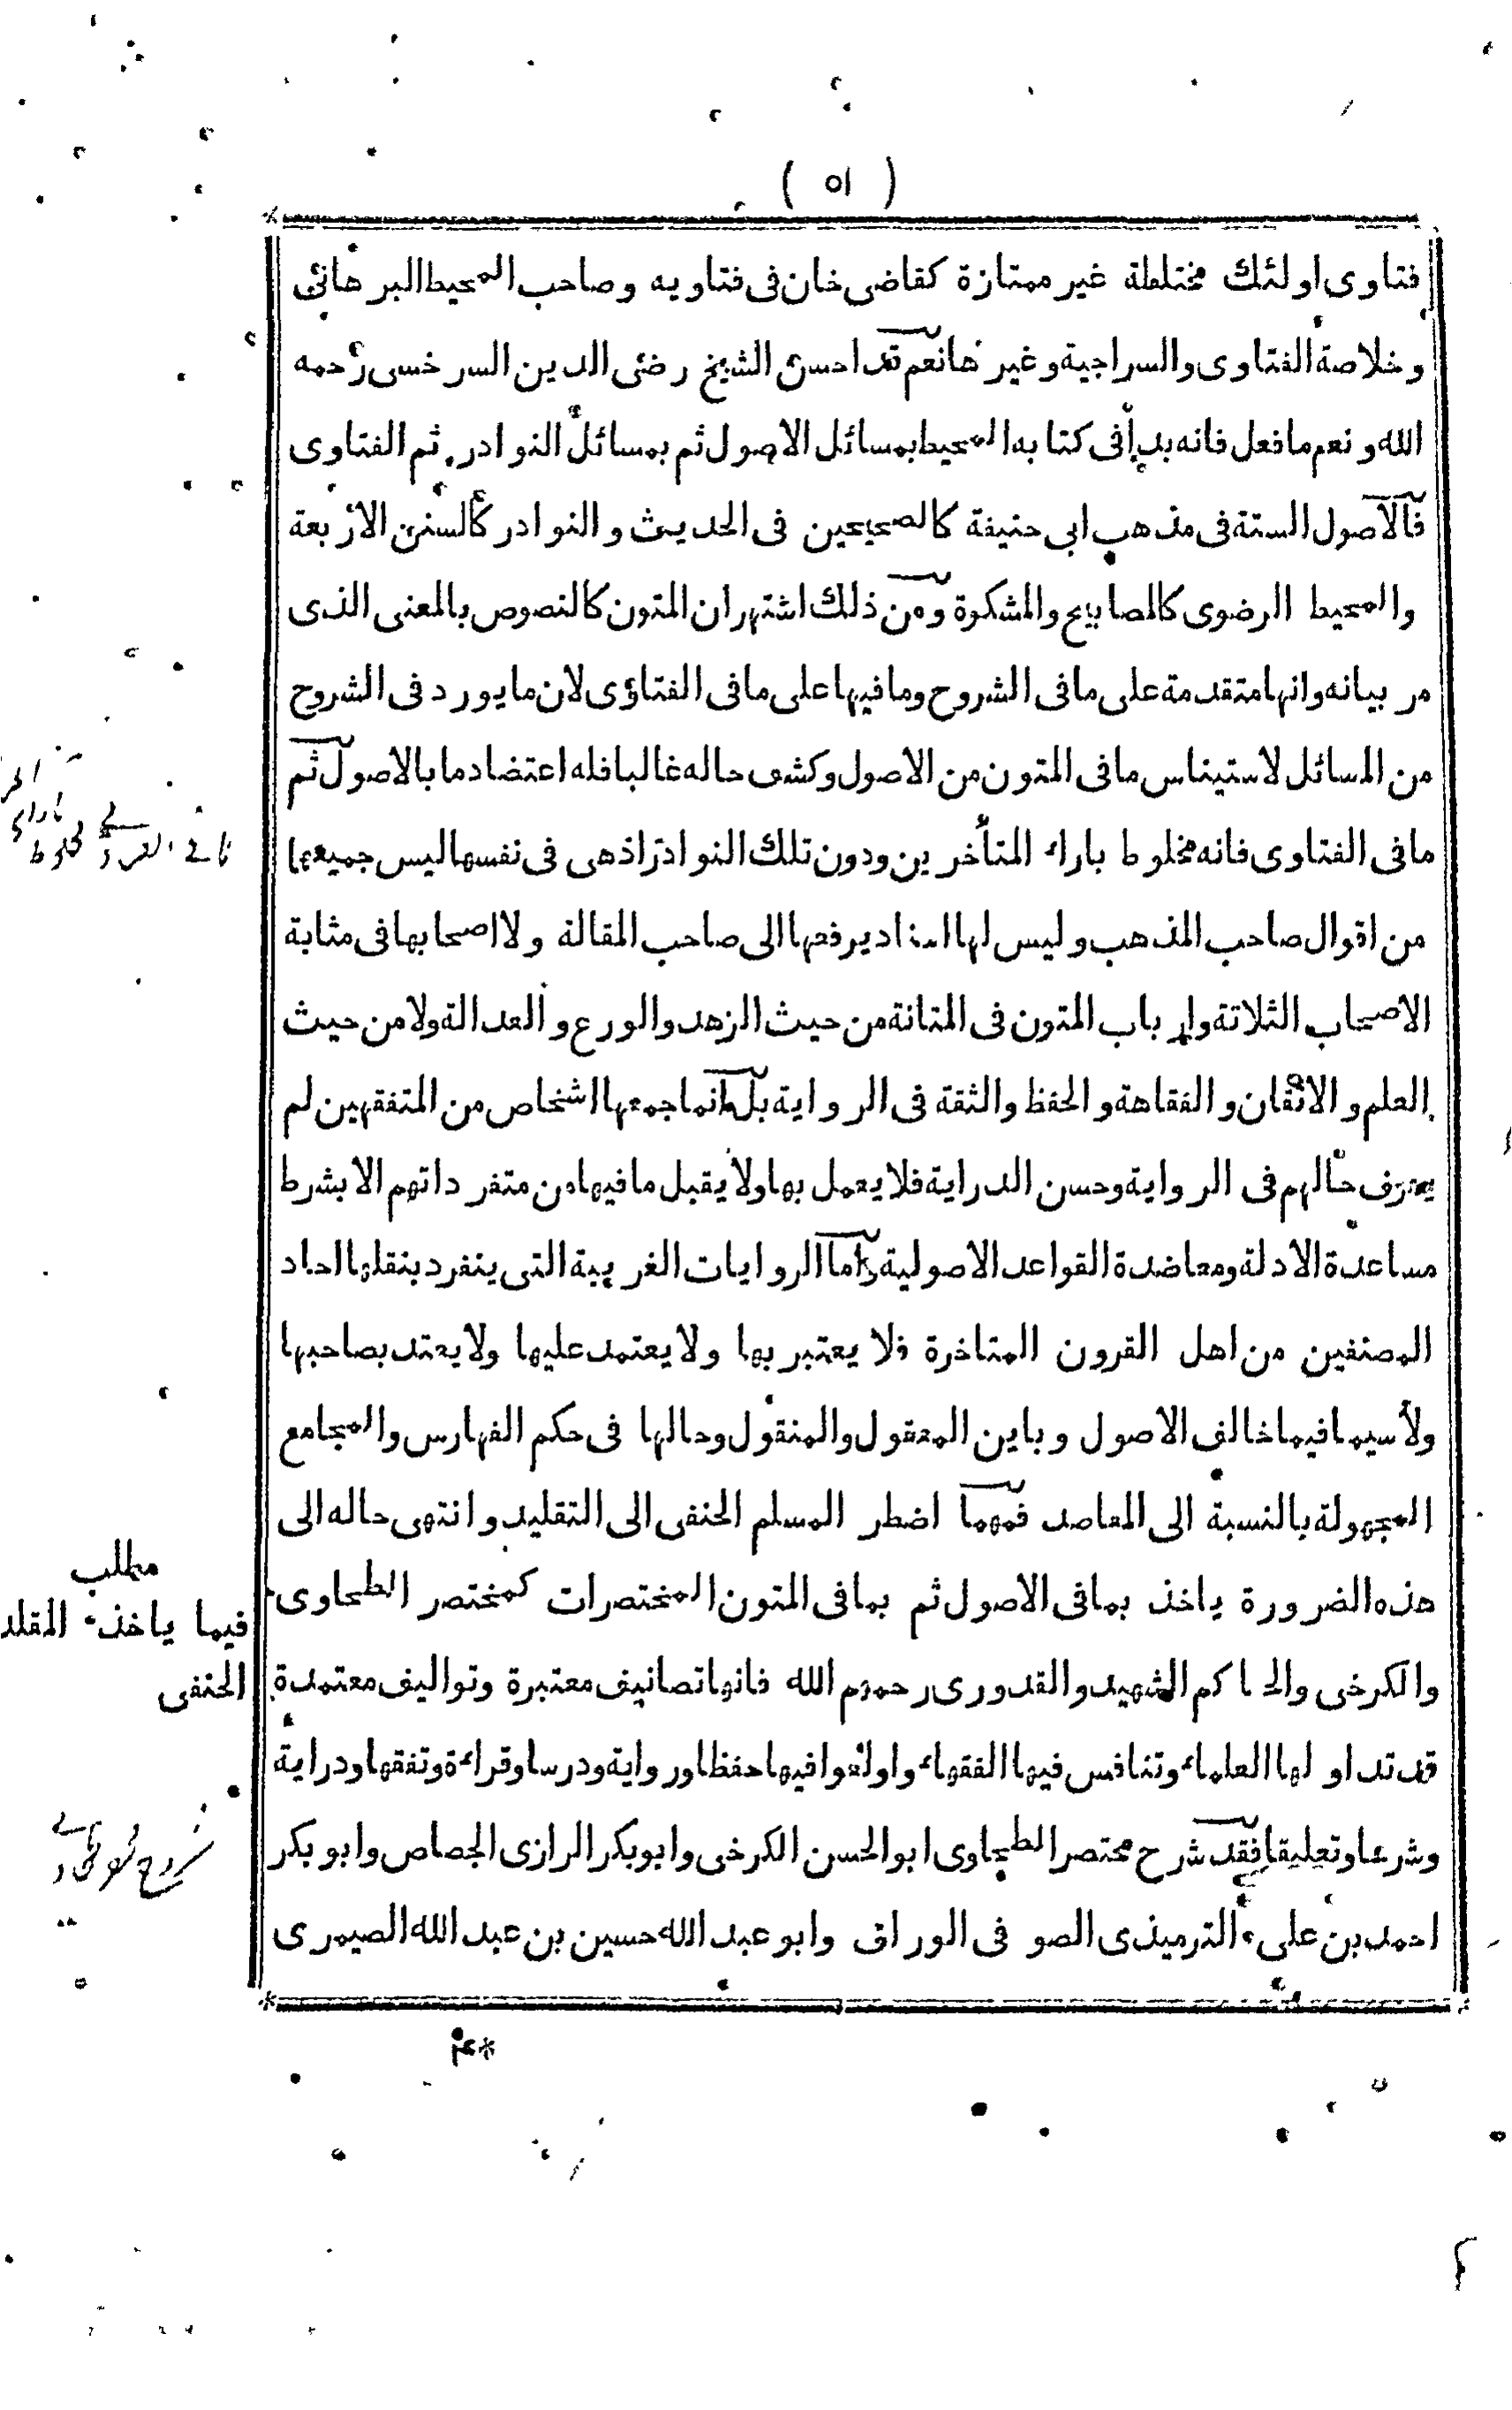 ( ٥١ )
فتاوى اولئك مختلطة غير ممتازة كقاضى خان فى فتاويه وصاحب المحيط البرهانى
وخلاصة الفتاوى والسراجية وغيرها نعم قد احسن الشيخ رضى الدين السرخسى رحمه
الله ونعم ما فعل فانه بدأ فى كتابه المحيط بمسائل الاصول ثم بمسائل النوادر ثم الفتاوى
فالاصول الستة فى مذهب ابى حنيفة كالصحيحين فى الحديث والنوادر كالسنن الاربعة
والمحيط الرضوى كالمصابيح والمشكوة ومن ذلك اشتهر ان المتون كالنصوص بالمعنى الذى
مر بيانه وانها متقدمة على ما فى الشروح وما فيها على ما فى الفتاوى لان ما يورد فى الشروح
من المسائل لاستيناس ما فى المتون من الاصول وكشف حاله غالبا فله اعتضاد ما بالاصول ثم
ما فى الفتاوى فانه مخلوط باراء المتأخرين ودون تلك النوادر اذ هى فى نفسها ليس جميعها
من اقوال صاحب المذهب وليس لها اسناد يرفعها الى صاحب المقالة ولا اصحابها فى مثابة
الاصحاب الثلاثة وارباب المتون فى المتانة من حيث الزهد والورع والعدالة ولا من حيث
العلم والاتقان والفقاهة والحفظ والثقة فى الرواية بل انما جمعها اشخاص من المتفقهين لم
يعرف حالهم فى الرواية وحسن الدراية فلا يعمل بها ولا يقبل ما فيها من متفرداتهم الا بشرط
مساعدة الادلة ومعاضدة القواعد الاصولية واما الروايات الغريبة التى ينفرد بنقلها احاد
المصنفين من اهل القرون المتاخرة فلا يعتبر بها ولا يعتمد عليها ولا يعتد بصاحبها
ولا سيما فيما خالف الاصول وباين المعقول والمنقول وحالها فى حكم الفهارس والمجامع
المجهولة بالنسبة الى المقاصد فمهما اضطر المسلم الحنفى الى التقليد وانتهى حاله الى
هذه الضرورة ياخذ بما فى الاصول ثم بما فى المتون المختصرات كمختصر الطحاوى
والكرخى والحاكم الشهيد والقدورى رحمهم الله فانها تصانيف معتبرة وتواليف معتمدة
قد تداولها العلماء وتنافس فيها الفقهاء واولعوا فيها حفظا ورواية ودرسا وقراءة وتفقها ودراية
وشرحا وتعليقا فقد شرح مختصر الطحاوى ابو الحسن الكرخى وابو بكر الرازى الجصاص وابو بكر
احمد بن على الترميذى الصوفى الوراق وابو عبد الله حسين بن عبد الله الصيمرى
مطلب
فيما ياخذ المقلد
الحنفى